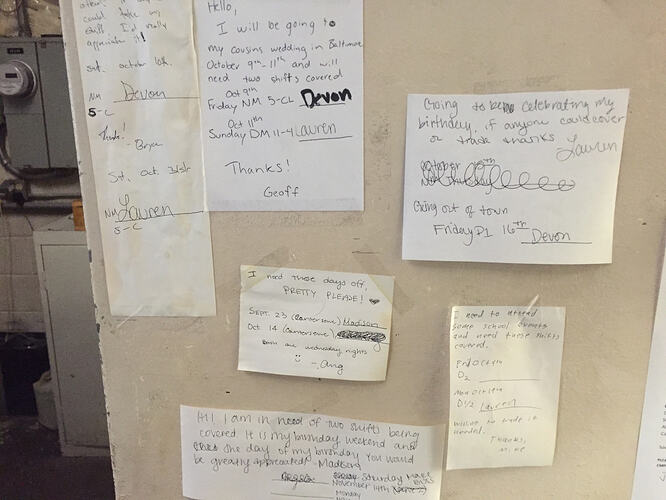 could take my
shift. I'd really
appreciate it!
Sat. october 10th.
NM Devon
5-C
Thanks!
- Bryan
Sat. Oct. 31st
NM Lauren
5-C
Hello,
I will be going to
my cousins wedding in Baltimore
October 9th-11th and will
need two shifts covered
Oct 9th
Friday NM 5-CL Devon
Oct 11th
Sunday DM 11-4 Lauren
Thanks!
Geoff
Going to be celebrating my
birthday, if anyone could cover
or trade thanks
Lauren
Going out of town
Friday D1 16th Devon
I need these days off,
PRETTY PLEASE!
SEPT. 23 (Canversone) Madison
Oct 14 (Canversone)
Both are wednesday nights
- Ang
I need to attend
some school events
and need these shifts
covered.
D2
D1/2 Lauren
willing to trade if
needed.
Thanks,
Mike
Hi! I am in need of two shifts being
covered. It is my birthday weekend and
one day of my birthday. You would
be greatly appreciated - Madison
Saturday
November 14th
Monday